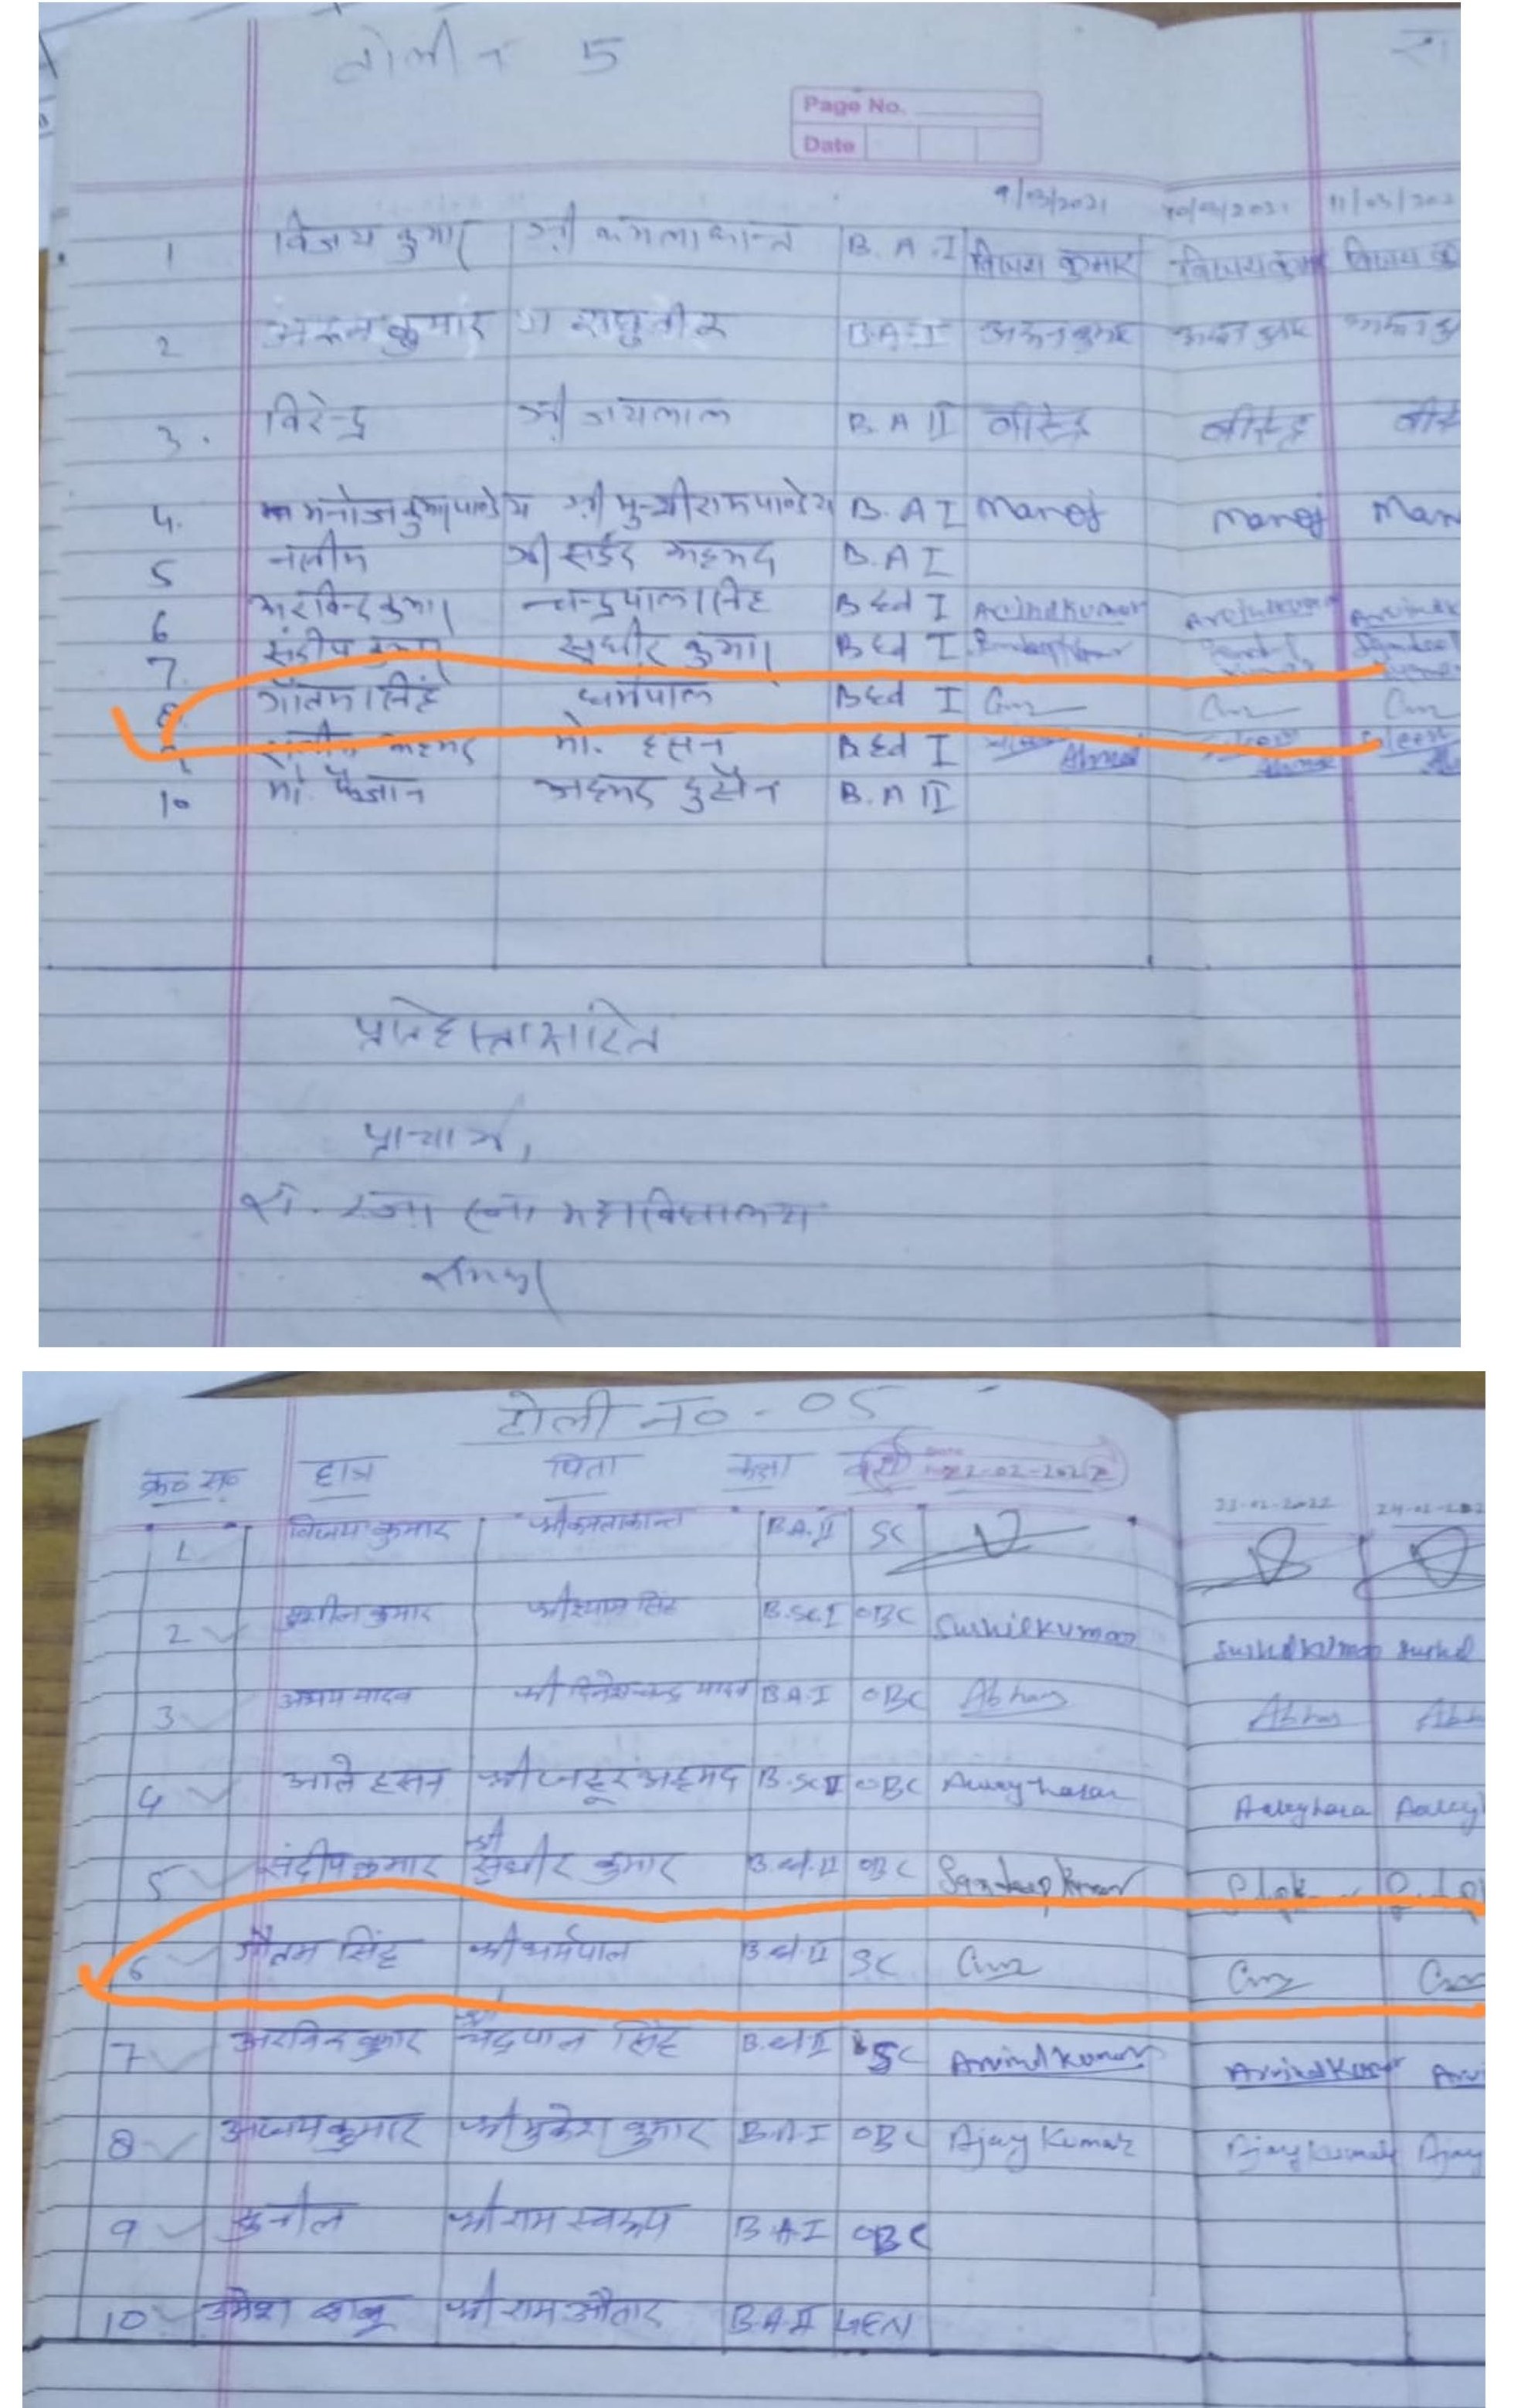 टोली न 5
Page No.
Date
9/03/2021 10/03/2021 11/03/202
1 विजय कुमार श्री कमलाकान्त B.A.I विजय कुमार विजय कुमार विजय कु
2 अरून कुमार रघुवीर B.A.I अरून कुमार अरून कुमार अरून कु
3. विरेन्द्र श्री जयलाल B.A II वीरेन्द्र वीरेन्द्र वीरे
4. मनोज कुमार पाण्डेय श्री मुन्शीराम पाण्डेय B.A I Manoj Manoj Man
5 श्री सईद अहमद B.A I
6 अरविन्द कुमार चन्द्रपाल सिंह B.Ed I Arvind Kumar Arvind Kumar Arvind K
7. संदीप कुमार सुधीर कुमार B.Ed I Sandeep Kumar
8. गौतम सिंह धर्मपाल B.Ed I
9 अहमद मो. हसन B.Ed I Ahmad
10 मो. फैजान अहमद हुसैन B.A II
प्रतिहस्ताक्षरित
प्राचार्य,
रा. रजा स्ना महाविद्यालय
रामपुर
टोली न० - 05
क्र० स० छात्र पिता कक्षा 22-02-2022 23-02-2022 24-02-202
1 विजय कुमार श्री कमलाकान्त B.A.II SC
2 सुशील कुमार श्री श्याम सिंह B.Sc I OBC Sushil kumar Sushil kumar Sushil
3 अभय यादव श्री दिनेश चन्द्र यादव B.A.I OBC Abhay Abhay Abh
4 आले हसन श्री जहूर अहमद B.Sc II OBC Aaley hasan Aaley hasa Aaley
5 संदीप कुमार श्री सुधीर कुमार B.ed.II OBC Sandeep Kumar
6 गौतम सिंह श्री धर्मपाल B.ed.II SC
7 अरविन्द कुमार श्री चंद्रपाल सिंह B.ed.II SC Arvind kumar Arvind Kumar Arvi
8 अजय कुमार श्री मुकेश कुमार B.A.I OBC Ajay Kumar Ajay kumar Ajay
9 सुनील श्री राम स्वरूप B.A.I OBC
10 उमेश बाबू श्री राम औतार B.A.II GEN